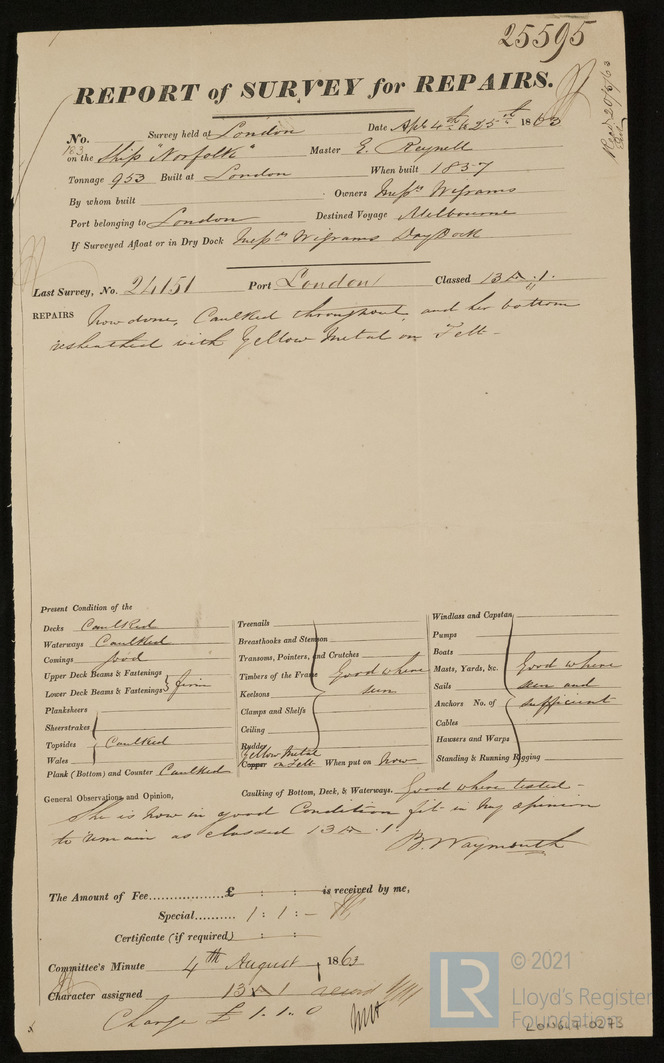 25595
REPORT of SURVEY for REPAIRS.
Recd 20/5/63
No. Survey held at London Date 4th & 25th 1863
183 on the Ship "Norfolk" Master E. Reynell
Tonnage 953 Built at London When built 1857
By whom built Owners Messrs Wigrams
Port belonging to London Destined Voyage Melbourne
If Surveyed Afloat or in Dry Dock Messrs Wigrams Dry Dock
Last Survey, No. 24151 Port London Classed 13 A.1.
REPAIRS now done, Caulked throughout, and her bottom
resheathed with Yellow Metal on Felt
Present Condition of the
Decks Caulked
Waterways Caulked
Comings good
Upper Deck Beams & Fastenings
Lower Deck Beams & Fastenings } firm
Planksheers
Sheerstrakes
Topsides Caulked
Wales
Plank (Bottom) and Counter Caulked
Treenails
Breasthooks and Stemson
Transoms, Pointers, and Crutches
Timbers of the Frame Good where
Keelsons seen
Clamps and Shelfs
Ceiling
Rudder
Yellow Metal
Copper on Felt When put on Now
Windlass and Capstan
Pumps
Boats
Masts, Yards, &c. Good where
Sails seen and
Anchors No. of sufficient
Cables
Hawsers and Warps
Standing & Running Rigging
Caulking of Bottom, Deck, & Waterways. Good where tested
General Observations and Opinion,
She is now in good Condition fit in my opinion
to remain as classed 13 A.1.
B. Waymouth
The Amount of Fee.................£ : : is received by me,
Special.......... 1 : 1 : –
Certificate (if required) : :
Committee's Minute 4th August 1863
Character assigned 13 A 1
Charge £ 1. 1. 0
LR
© 2021
Lloyd's Register
Foundation
LON647-0273